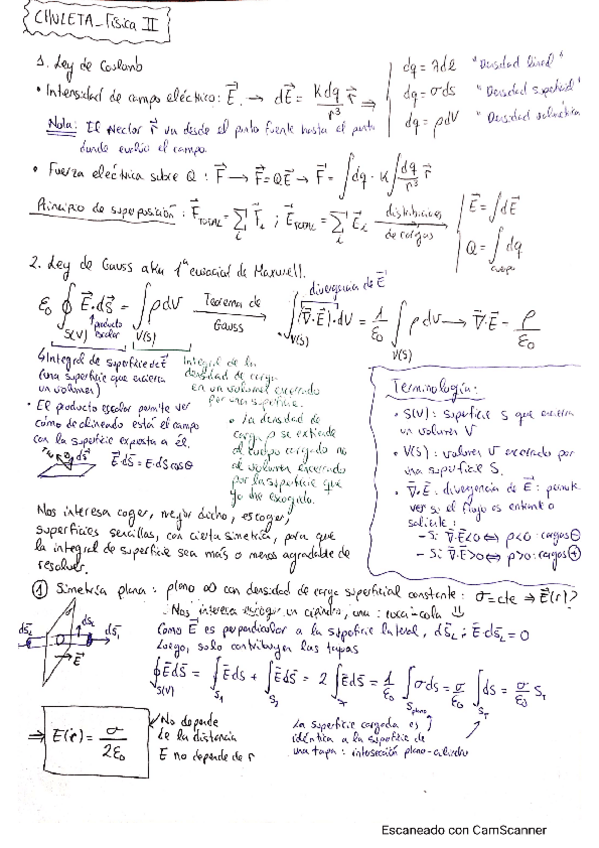 CHULETA_Física II
1. Ley de Coulomb
• Intensidad de campo eléctrico: E⃗. → dE⃗ = K dq / r³ r⃗ ⇒
dq = λdl "Densidad lineal"
dq = σds "Densidad superficial"
dq = ρdV "Densidad volumétrica"
Nota: El vector r⃗ va desde el punto fuente hasta el punto
donde evalúo el campo.
• Fuerza eléctrica sobre Q: F⃗ → F⃗ = QE⃗ → F⃗ = ∫dq · K∫ dq/r³ r⃗
Principio de superposición: F⃗TOTAL = Σi F⃗i ; E⃗TOTAL = Σi E⃗i distribuciones de cargas →
E⃗ = ∫dE⃗
Q = ∫cuerpo dq
2. Ley de Gauss aka 1ª ecuación de Maxwell.
divergencia de E⃗
ε₀ ∮S(V) E⃗·dS⃗ = ∫V(S) ρdV Teorema de Gauss → ∫V(S) (∇⃗·E⃗)·dV = 1/ε₀ ∫V(S) ρdV → ∇⃗·E⃗ = ρ/ε₀
producto escalar
↳ Integral de superficie de E⃗
(una superficie que encierra
un volumen)
Integral de la
densidad de carga
en un volumen encerrado
por una superficie.
• El producto escalar permite ver
cómo de alineado está el campo
con la superficie expuesta a él.
E⃗·dS⃗ = E·dS cosθ
• La densidad de
carga ρ se extiende
al cuerpo cargado no
al volumen encerrado
por la superficie que
yo he escogido.
Terminología:
• S(V): superficie S que encierra
un volumen V
• V(S): volumen V encerrado por
una superficie S.
• ∇⃗·E⃗: divergencia de E⃗: permite
ver si el flujo es entrante o
saliente:
- Si ∇⃗·E⃗<0 ⇔ ρ<0: cargas ⊖
- Si ∇⃗·E⃗>0 ⇔ ρ>0: cargas ⊕
Nos interesa coger, mejor dicho, escoger,
superficies sencillas, con cierta simetría, para que
la integral de superficie sea más o menos agradable de
resolver.
① Simetría plana: plano ∞ con densidad de carga superficial constante: σ=cte ⇒ E⃗(r)?
Nos interesa escoger un cilindro, una: coca-cola
Como E⃗ es perpendicular a la superficie lateral, dS⃗L; E⃗·dS⃗L = 0
Luego, solo contribuyen las tapas
dS⃗2 dS⃗L dS⃗1
E⃗
∮S(V) E⃗dS⃗ = ∫S1 E⃗dS + ∫S2 E⃗dS⃗ = 2∫T E⃗dS⃗ = 1/ε₀ ∫Splano σds = σ/ε₀ ∫ST ds = σ/ε₀ ST
⇒ E(r) = σ / 2ε₀
No depende
de la distancia
E no depende de r
La superficie cargada es
idéntica a la superficie de
una tapa: intersección plano-cilindro
Escaneado con CamScanner